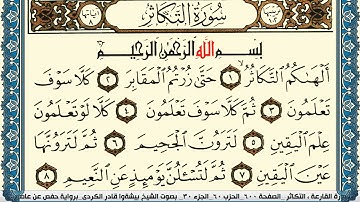 سُورَةُ التَّكَاثُرِ
بِسْمِ اللَّهِ الرَّحْمَٰنِ الرَّحِيمِ
أَلْهَىٰكُمُ ٱلتَّكَاثُرُ ١ حَتَّىٰ زُرْتُمُ ٱلْمَقَابِرَ ٢ كَلَّا سَوْفَ
تَعْلَمُونَ ٣ ثُمَّ كَلَّا سَوْفَ تَعْلَمُونَ ٤ كَلَّا لَوْ تَعْلَمُونَ
عِلْمَ ٱلْيَقِينِ ٥ لَتَرَوُنَّ ٱلْجَحِيمَ ٦ ثُمَّ لَتَرَوُنَّهَا
عَيْنَ ٱلْيَقِينِ ٧ ثُمَّ لَتُسْـَٔلُنَّ يَوْمَئِذٍ عَنِ ٱلنَّعِيمِ ٨
القارعة ، التكاثر الصفحة ٦٠٠ الحزب ٦٠ الجزء ٣٠ بصوت الشيخ بيشةوا قادر الكردي برواية حفص عن